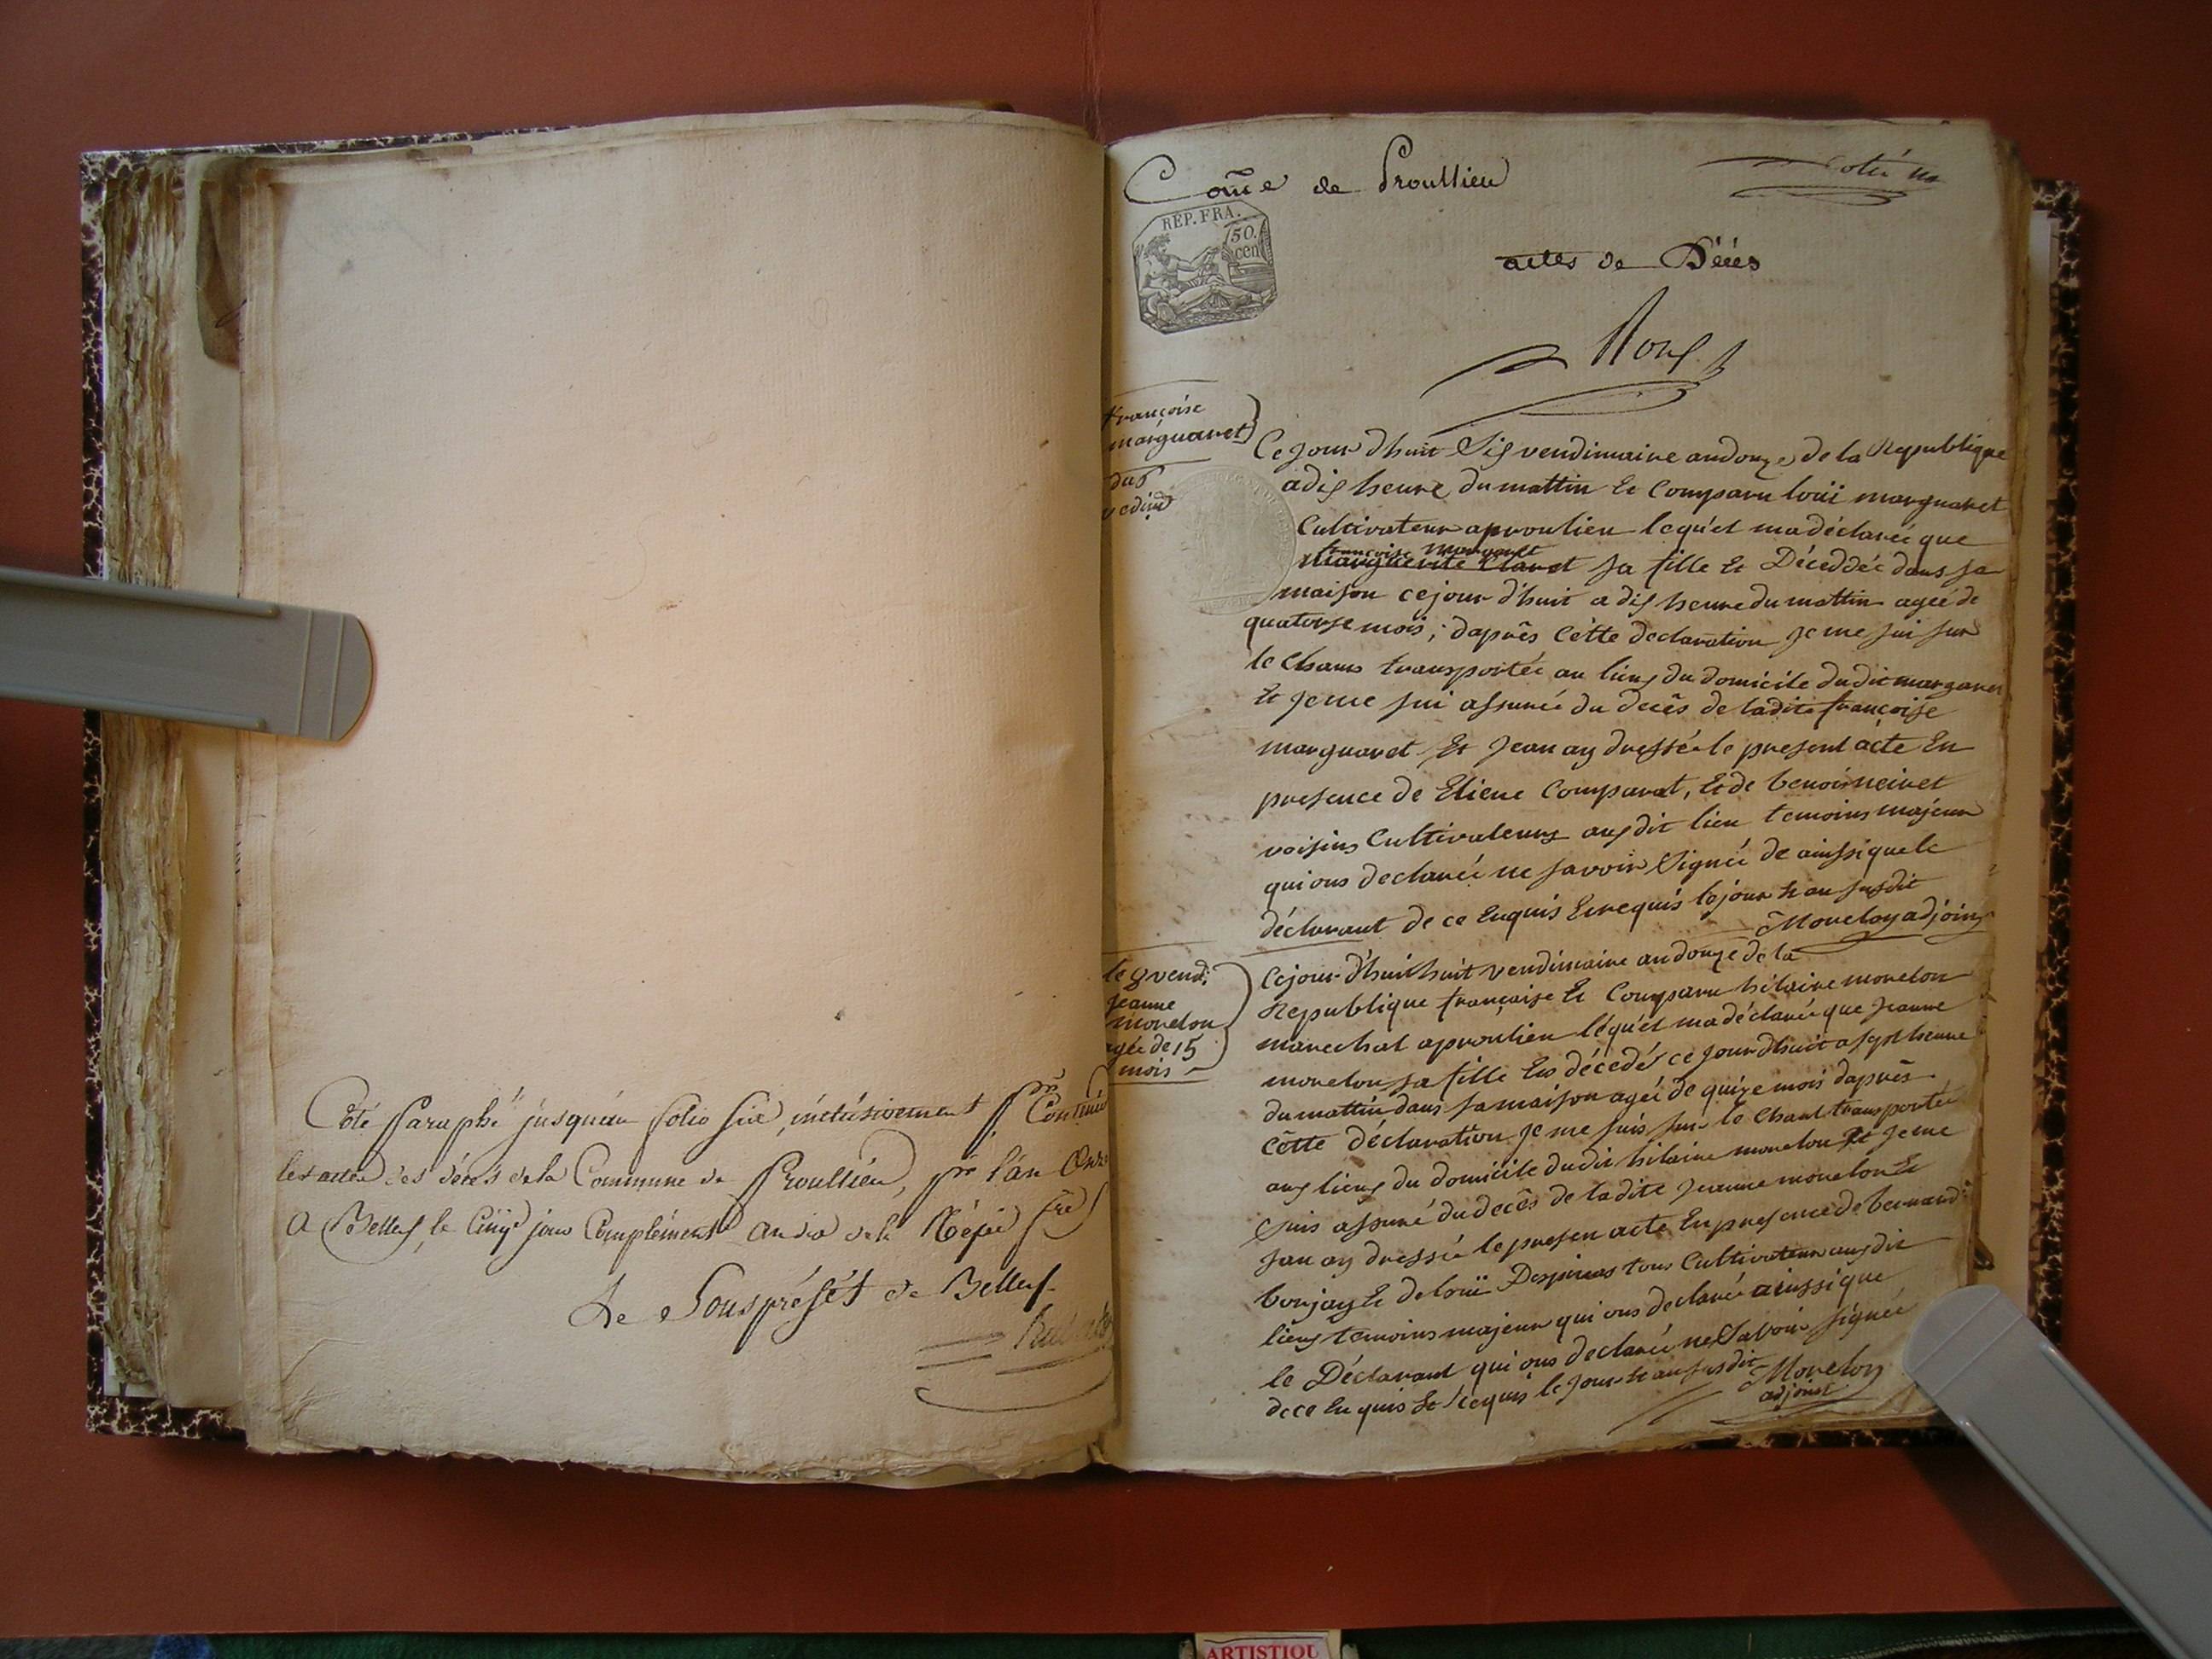 Coté Paraphé jusqu'au folio six inclusivement pr Contenir
les actes des décès de la Commune de Proullieu, pr l'an
A Belley, le Cinq jour Complément an dix de la Rép
Le Souspréfét de Belley
Coñe de Proullieu
actes de Décés
REP. FRA.
50.
cen
françoise
marguaret
du 6
Ce jour dhuit Six vendimaire an douze de la Republique
a dix heure du mattin Et Comparu loüi marguaret
Cultivateur a proulieu lequ'el ma déclareé que
françoise marguaret
sa fille Et Décéddéé dans sa
maison ce jour d'huit a dix heure du mattin ageé de
quatorse mois, d'aprês cétte declaration je me sui sur
le Chams transportée au lieux du domicile du dit margaret
Et je me sui assureé du decês de ladite françoise
marguaret Et jean ay dressée le present acte En
presence de Etiene Comparat, Et de benoit neiret
voisins Cultivateurs aux dit lieu temoins majeur
qui ons declareé ne savoir Signeé de ainssi que le
déclarant de ce Enquis Erequis le jour Et an susdit
Morelon adjoins
le 8 vend:
jeanne
morelon
agée de 15
mois
Ce jour d'huit huit vendimaire an douze de la
Republique française Et Comparu hilaire morelon
marechal a proulieu léqu'el ma déclareé que jeanne
morelon sa fille Es décedés ce jour dhuit a sept heure
du mattin dans sa maison ageé de quinze mois d'aprês
cêtte déclaration je me suis sur le Chant transportée
aux lieux du domicile du dit hilaire morelon Et je me
suis assuré du decês de ladite jeanne morelon Et
jan ay dressée le presen acte En presence de bernard
bonjay Et de loüi Despinas tous Cultivateur aux dit
lieux temoins majeur qui ons declareé ainssi que
le Déclarant qui ons declareé ne Savoir signeé
de ce En quis Et requis le jour Et an susdit Morelon
adjoint
ARTISTIQU